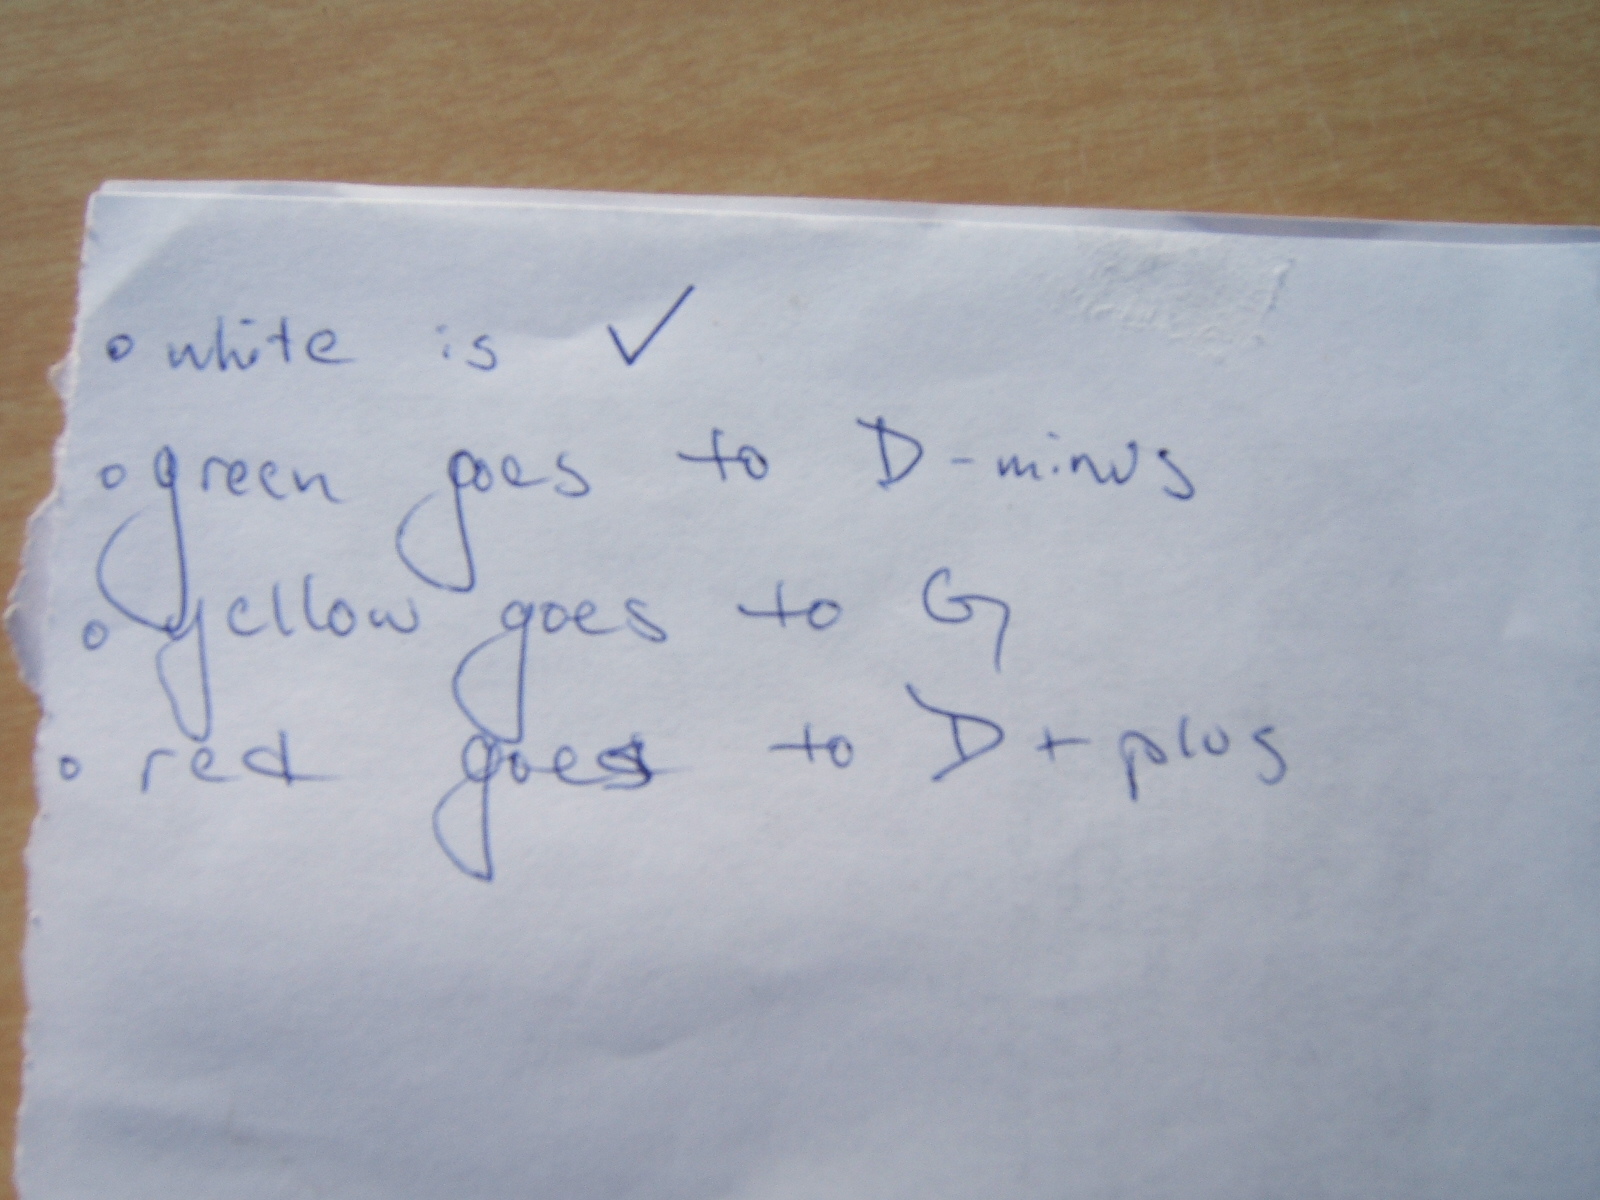 • white is ✓
• green goes to D-minus
• yellow goes to G
• red goes to D+plus